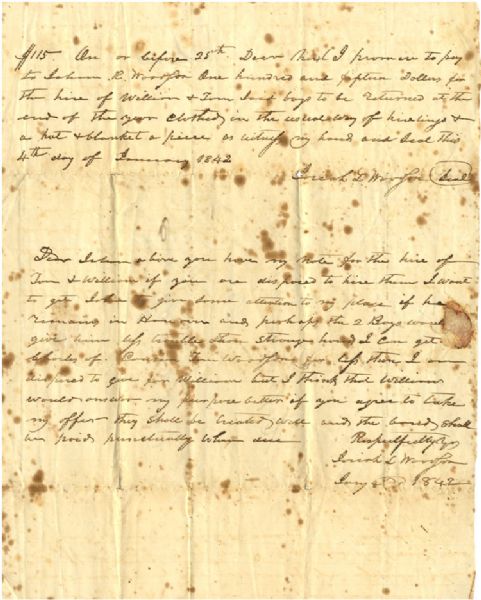 $115 On or before 25th Decr next I promise to pay
to R. Woodson One hundred and fifteen Dollars for
the hire of William & Tom said boys to be returned at the
end of the year Clothed in the usual way of hirelings &
a hat & blanket a piece as witness my hand and Seal this
4th day of January 1842
L Woodson Seal
Dear above you have my note for the hire of
Tom & William if you are disposed to hire them I want
to get to give some attention to my place if he
remains in and perhaps the 2 Boys would
give him less trouble than strange hand I can get
of Woodson for less than I am
disposed to give for William but I think that William
would answer my purpose better if you agree to take
my offer they shall be treated well and the bond shall
be paid punctually when due
Respectfully Yrs
L Woodson
Jany 1842